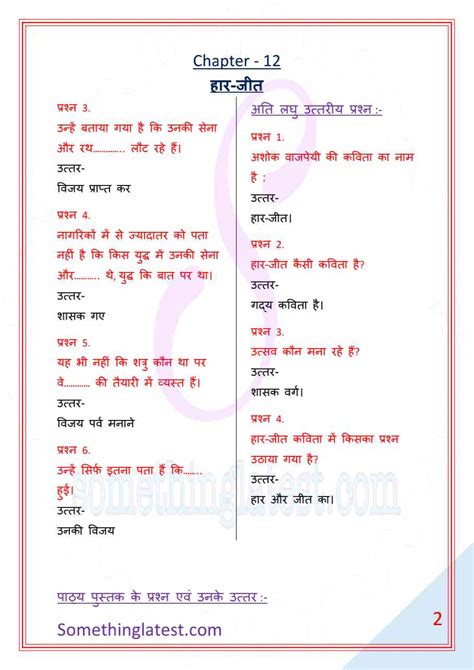 Chapter - 12
हार-जीत
प्रश्न 3.
उन्हें बताया गया है कि उनकी सेना
और रथ............. लौट रहे हैं।
उत्तर-
विजय प्राप्त कर
प्रश्न 4.
नागरिकों में से ज्यादातर को पता
नहीं है कि किस युद्ध में उनकी सेना
और.......... थे, युद्ध कि बात पर था।
उत्तर-
शासक गए
प्रश्न 5.
यह भी नहीं कि शत्रु कौन था पर
वे............ की तैयारी में व्यस्त हैं।
उत्तर-
विजय पर्व मनाने
प्रश्न 6.
उन्हें सिर्फ इतना पता हैं कि.......
हुई।
उत्तर-
उनकी विजय
अति लघु उत्तरीय प्रश्न :-
प्रश्न 1.
अशोक वाजपेयी की कविता का नाम
है :
उत्तर-
हार-जीत।
प्रश्न 2.
हार-जीत कैसी कविता है?
उत्तर-
गद्य कविता है।
प्रश्न 3.
उत्सव कौन मना रहे हैं?
उत्तर-
शासक वर्ग।
प्रश्न 4.
हार-जीत कविता में किसका प्रश्न
उठाया गया है?
उत्तर-
हार और जीत का।
somethinglatest.com
पाठ्य पुस्तक के प्रश्न एवं उनके उत्तर :-
Somethinglatest.com
2